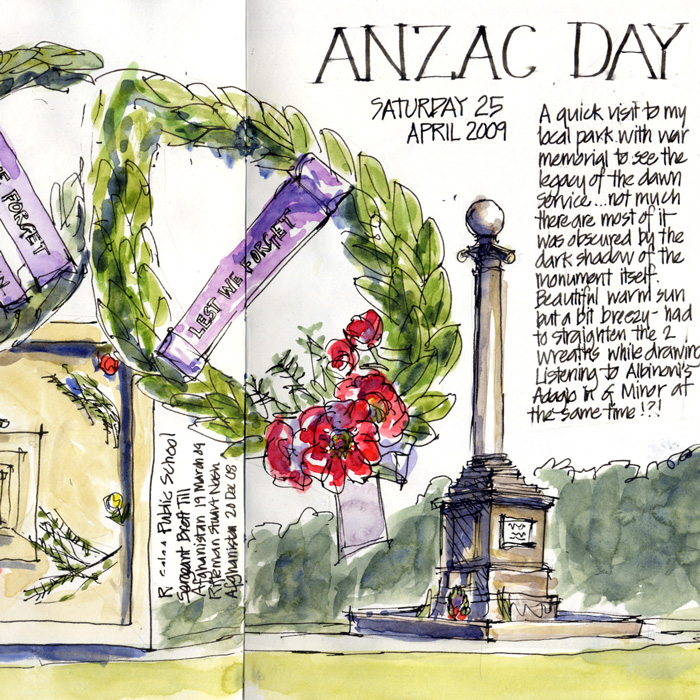 ANZAC DAY
SATURDAY 25
APRIL 2009
A quick visit to my
local park with war
memorial to see the
legacy of the dawn
service...not much
there are most of it
was obscured by the
dark shadow of the
monument itself.
Beautiful warm sun
but a bit breezy - had
to straighten the 2
wreaths while drawing
Listening to Albinoni's
Adagio in G Minor at
the same time!?!
WE FORGET
LEST WE FORGET
Public School
Sargeant Brett Till
Afghanistan 19 March 09
Rifleman Stuart Nash
Afghanistan 20 Dec 08